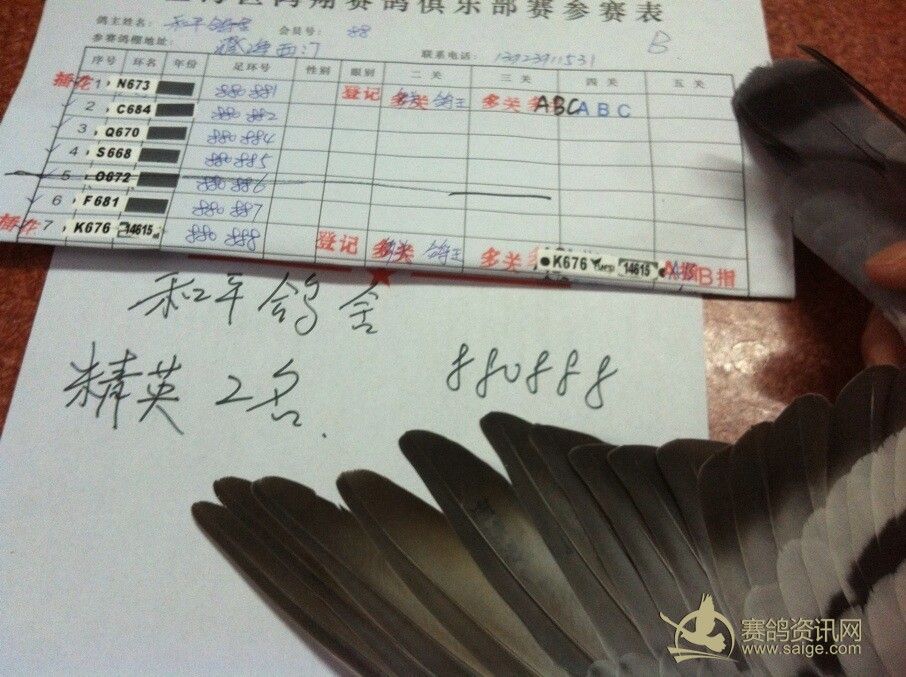 鸽翔赛鸽俱乐部赛参赛表
鸽主姓名: 和平鸽舍 会员号: 88
B
参赛鸽棚地址: 澄海西门 联系电话: 13923911531
序号 环名 年份 足环号 性别 眼别 二关 三关 四关 五关
插花 1 N673 880881 登记 多关 鸽王 多关 ABC ABC
2 C684 880882
3 Q670 880884
4 S668 880885
5 O672 880886
6 F681 880887
插花 7 K676 14615 880888 登记 多关 鸽王 多关 K676 14615 B指
和平鸽舍
精英2名.
880888
赛鸽资讯网
www.saige.com